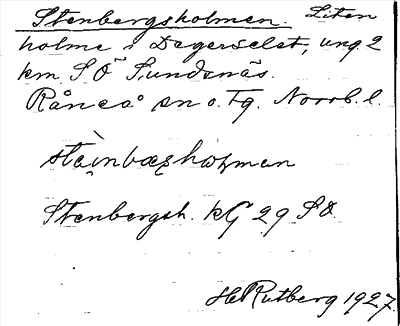 Stenbergsholmen. Liten
holme i Degerselet, ung. 2
km SÖ Sundsnäs.
Råneå sn o. Tg. Norrb. l.
Stenbergsh. KG 29 SO.
H Rutberg 1927.